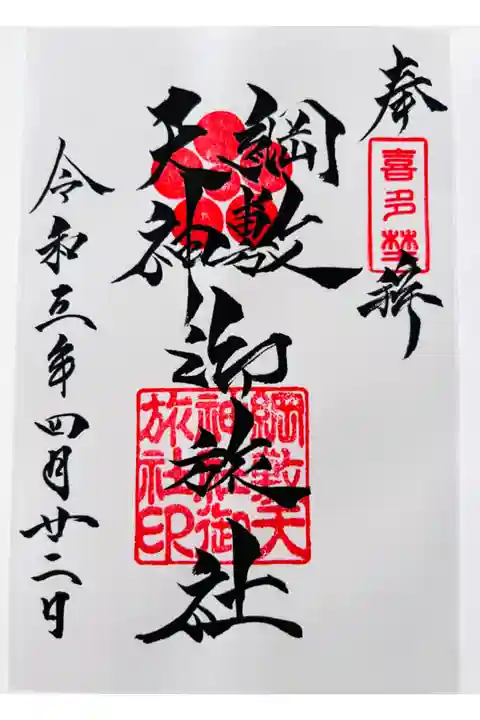 奉拝
喜多埜
綱敷
天神
御旅社
綱敷天
神社御
旅社印
令和三年四月廿二日